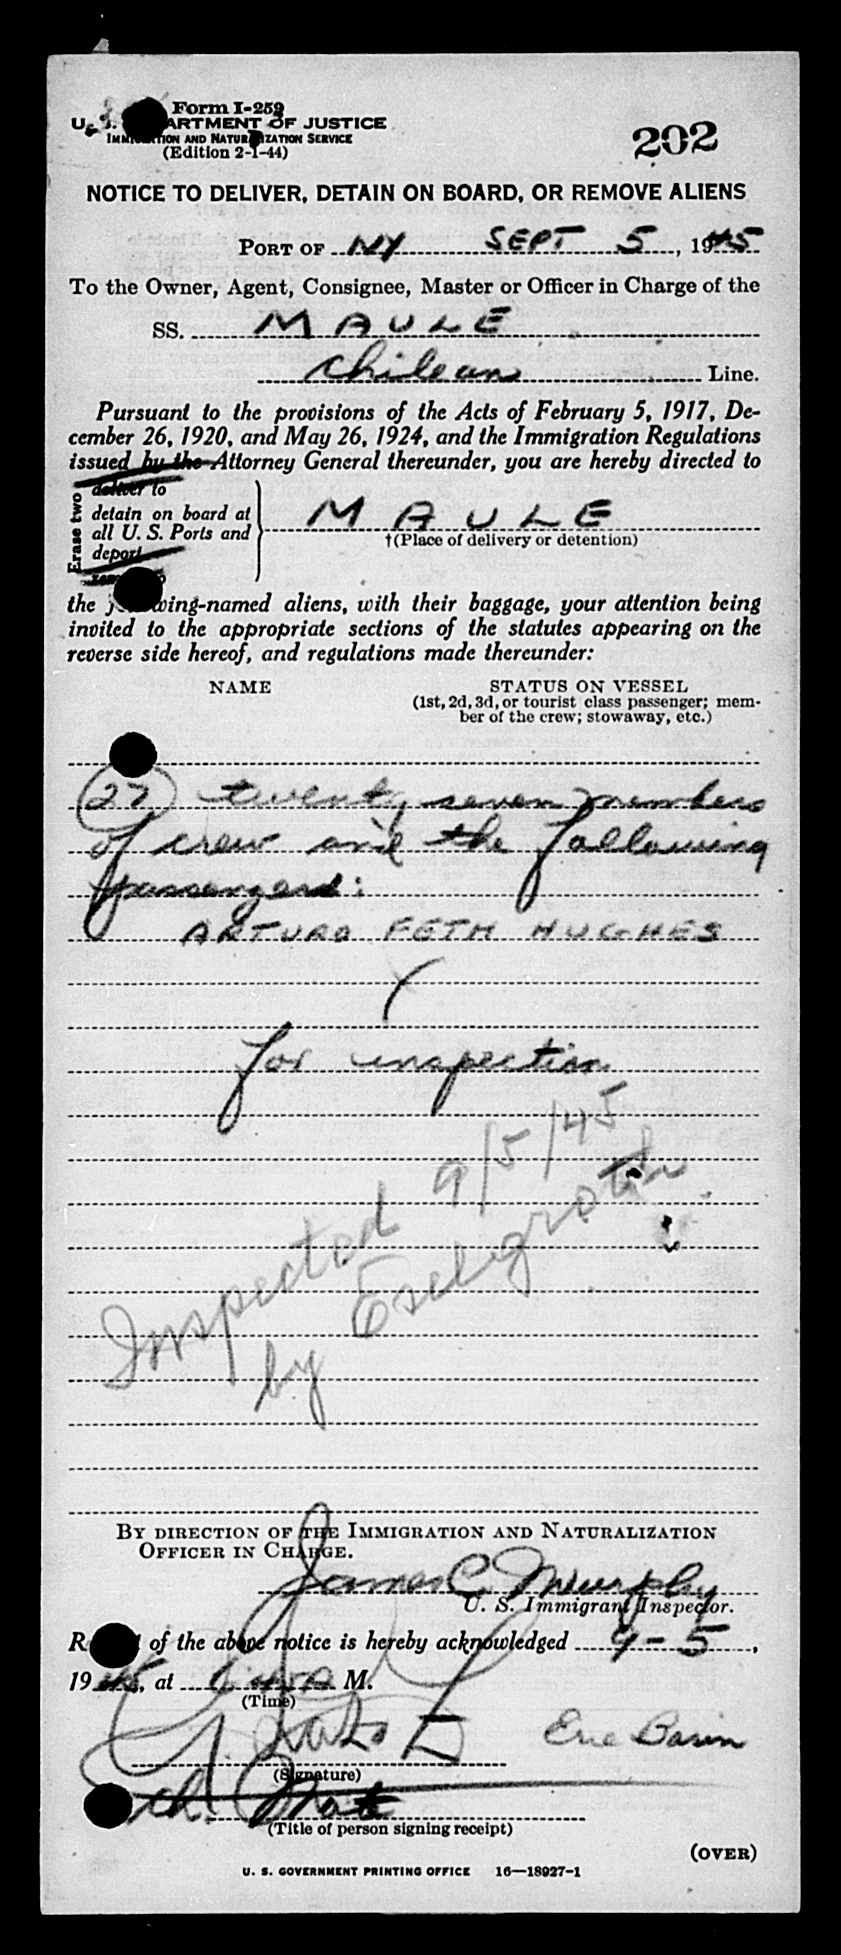 Form I-259
U. S. DEPARTMENT OF JUSTICE
IMMIGRATION AND NATURALIZATION SERVICE
(Edition 2-1-44)
202
NOTICE TO DELIVER, DETAIN ON BOARD, OR REMOVE ALIENS
PORT OF NY SEPT 5, 1945
To the Owner, Agent, Consignee, Master or Officer in Charge of the
SS. MAULE
Chilean Line.
Pursuant to the provisions of the Acts of February 5, 1917, De-
cember 26, 1920, and May 26, 1924, and the Immigration Regulations
issued by the Attorney General thereunder, you are hereby directed to
Erase two
deliver to
detain on board at
all U. S. Ports and
deport
MAULE
†(Place of delivery or detention)
the following-named aliens, with their baggage, your attention being
invited to the appropriate sections of the statutes appearing on the
reverse side hereof, and regulations made thereunder:
NAME STATUS ON VESSEL
(1st, 2d, 3d, or tourist class passenger; mem-
ber of the crew; stowaway, etc.)
(27) twenty seven members
of crew and the following
passengers:
ARTURO FETH HUGHES
for inspection
Inspected 9/5/45
by
BY DIRECTION OF THE IMMIGRATION AND NATURALIZATION
OFFICER IN CHARGE.
James C. Murphy
U. S. Immigrant Inspector.
Receipt of the above notice is hereby acknowledged 9-5,
1945, at M.
(Time)
(Signature)
ch. Mate
(Title of person signing receipt)
(OVER)
U. S. GOVERNMENT PRINTING OFFICE 16—18927-1